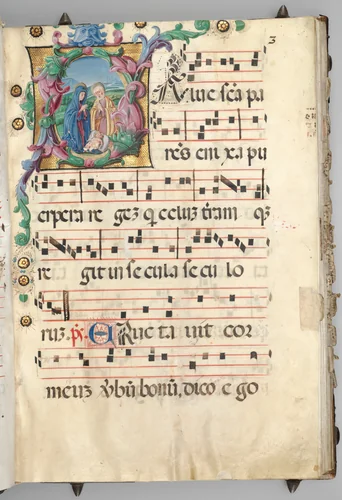 3
SAlue scā pa
rēs eni xa pu
erpera re gez q̄ celuz t̄ram qz
re git in se cula se cu lo
ruz. ps. ERuc ta uit cor
meuz v̄bū bonū, dico e go